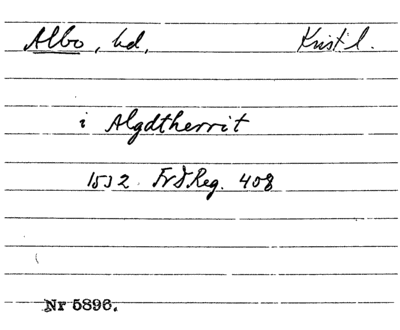 Albo, hd, Krist'l.
i Algdtherrit
1532 Fr I. Reg. 408
Nr 5896.